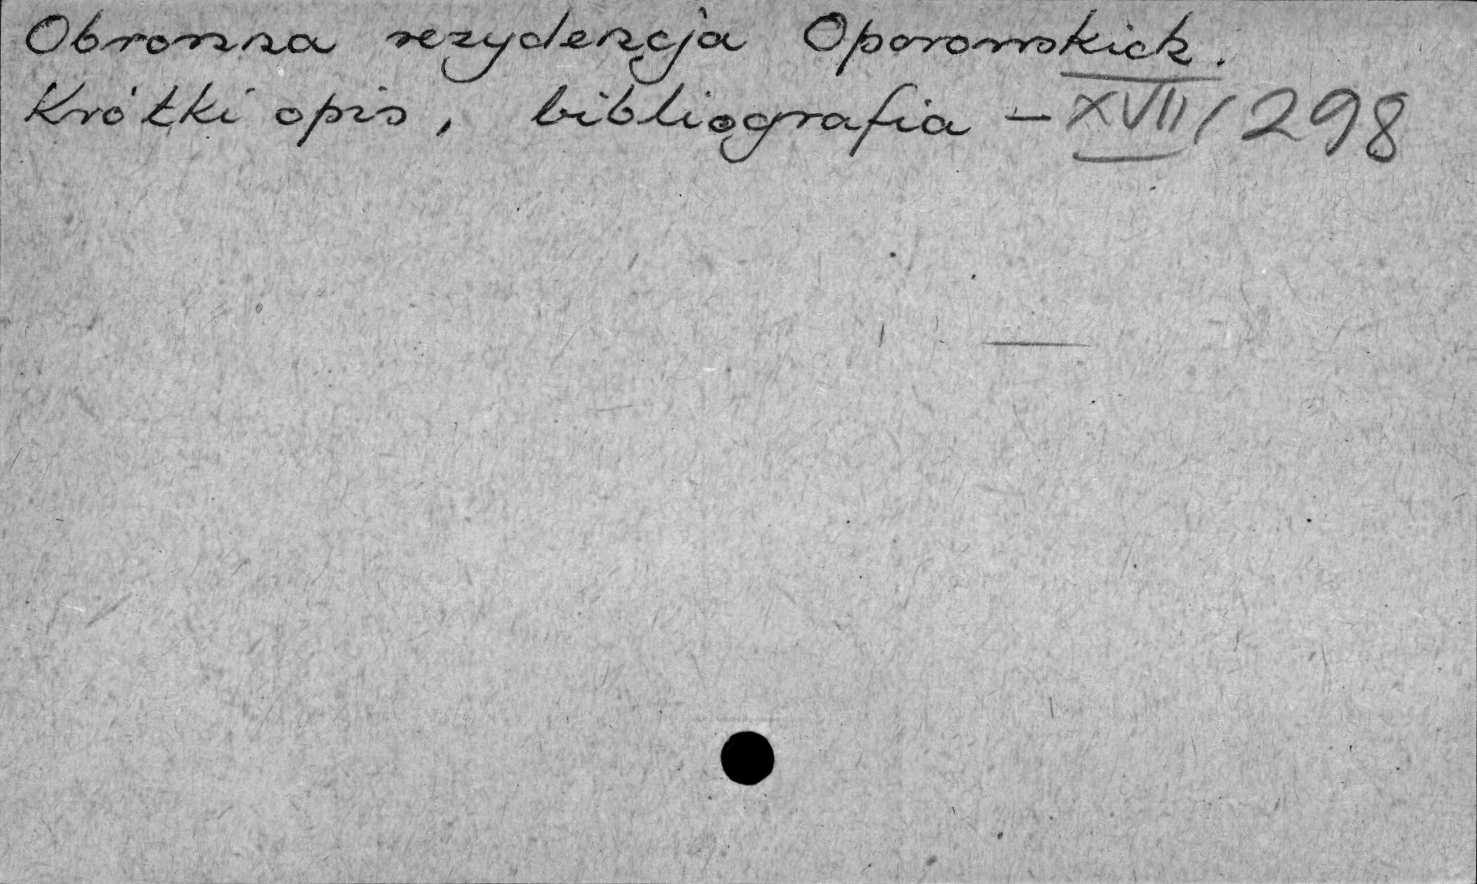 Obronna rezydencja Oporowskich.
Krótki opis, bibliografia – XVII/298